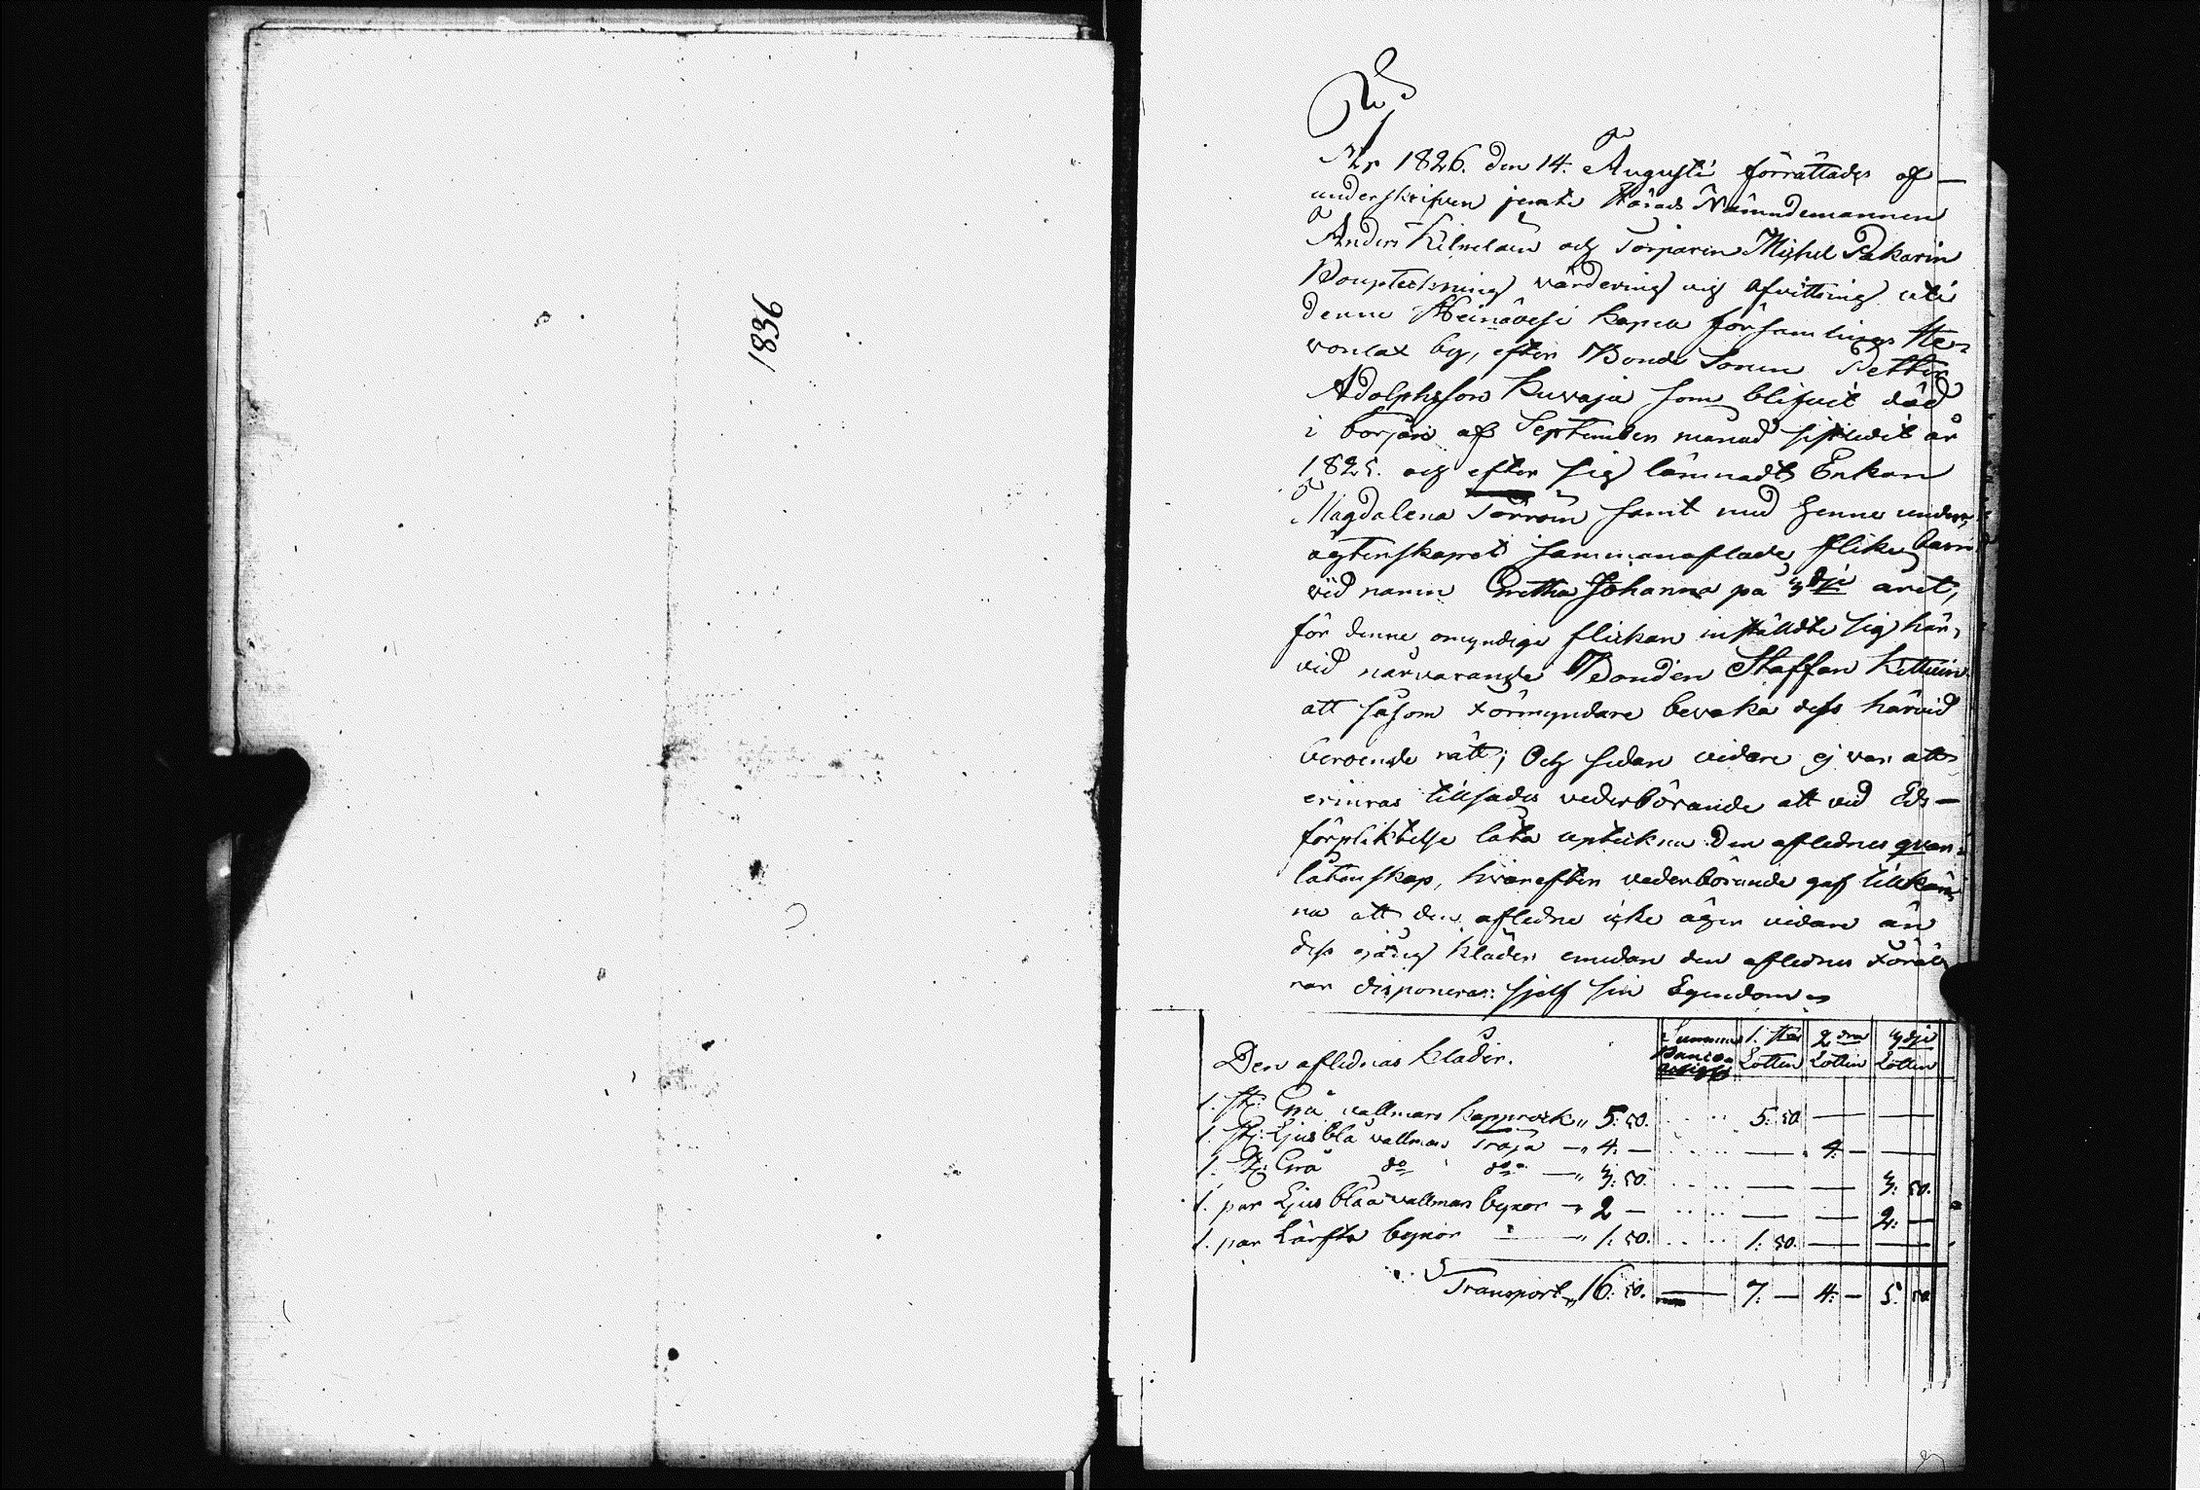 1836
År 1826. den 14. Augusti förrättades af
underskrifven jemte Härads Nämndemannen
Anders Kilpeläin och Torparen Michel Pakarin
Boupteckning värdering och afvittring uti
denne Heinävesi Kapell församlings Her-
vonlax by, efter Bonde Sonen Petter
Adolphsson Kuvaja som blifvit död
i början af September månad sistledit år
1825. och efter sig lämnadt Enkan
Magdalena Törröin samt med henne under
ägtenskapet sammanaflade flicke barn
vid namn Gretha Johanna på 3dje året,
för denne omyndige flickan instälte sig här-
vid närvarande Bonden Staffan Kettuin
att såsom Förmyndare bevaka dess härvid
beroende rätt; Och sedan vidare ej var att
erinras tillsades vederbörande att vid Eds-
förpliktelse låta upteckna Den aflednes qvar-
låtenskap, hvarefter vederbörande gaf tillkän-
na att den afledne icke äger vidare än
dess egdug kläder emedan den aflednes Föräld-
rar disponerar sjelf sin Egendom
Den aflednas Kläder. Summa Banco Assigs 1. sta Lotten 2 dra Lotten 3dje Lotten
1. st: Grå vallmars kapprock " 5: 50. 5: 50 — —
1. st: Ljusblå vallmars Tröja — " 4: — — 4: — —
1. st: Grå do do — " 3: 50. — — 3: 50.
1. par Ljus blåa vallmars byxor — " 2 — — — 2: —
1. par Lärfts byxor — " 1: 50. 1: 50. — —
Transport " 16: 50. — 7: — 4: — 5: 50